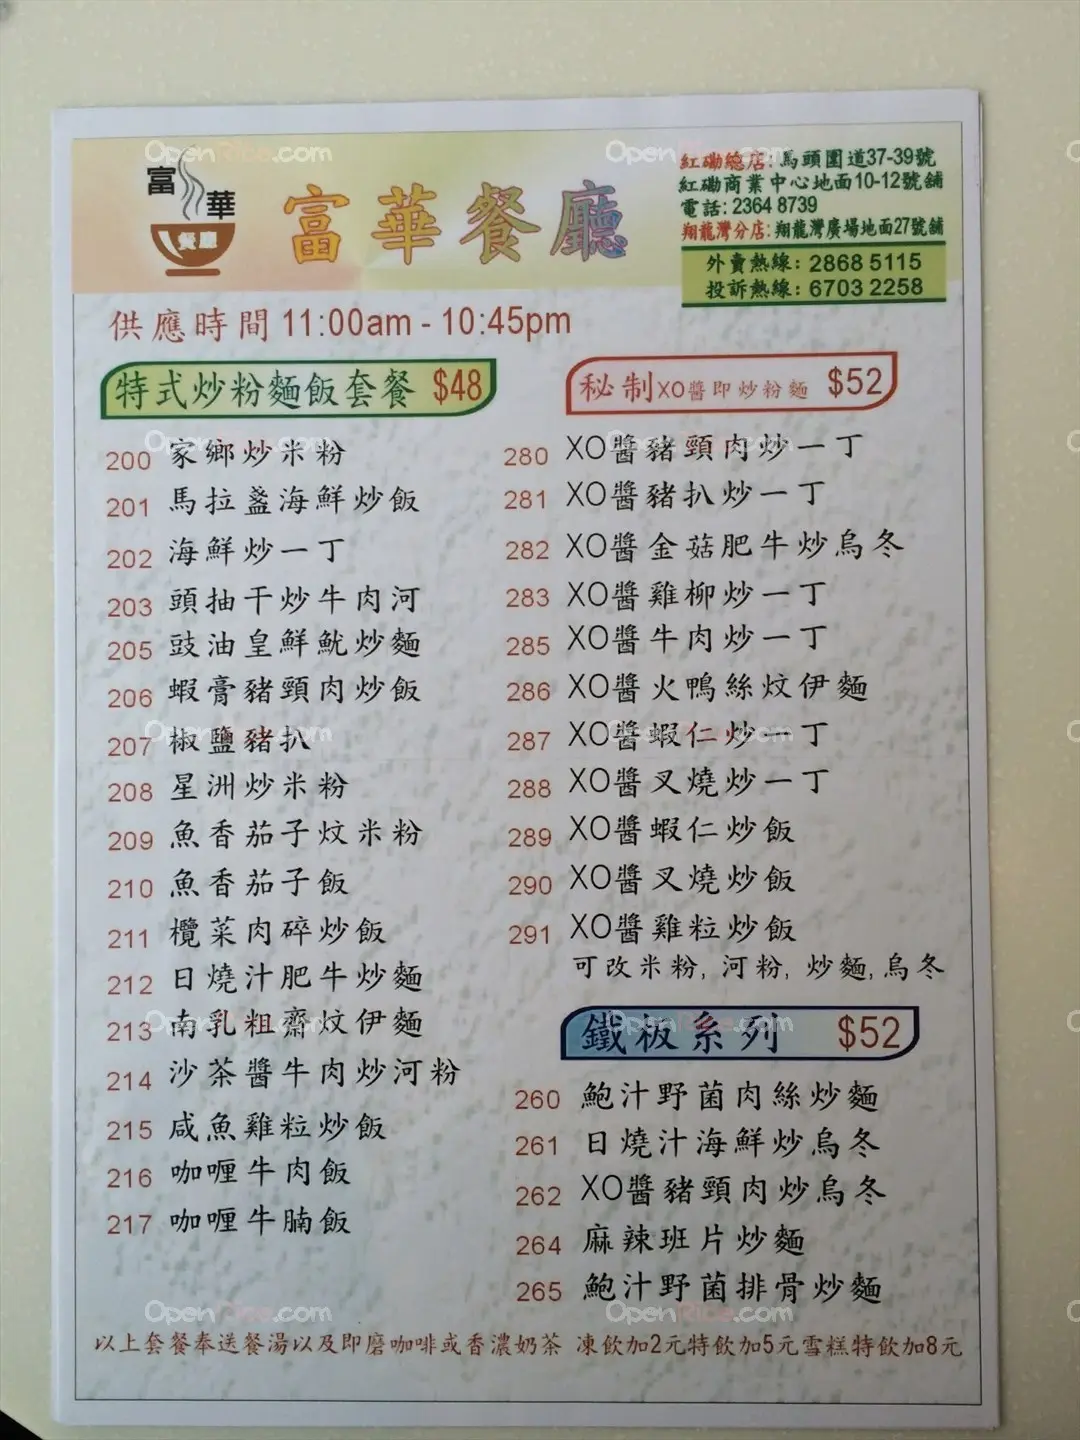 富
華
餐廳
富華餐廳
紅磡總店: 馬頭圍道37-39號
紅磡商業中心地面10-12號舖
電話: 2364 8739
翔龍灣分店: 翔龍灣廣場地面27號舖
外賣熱線: 2868 5115
投訴熱線: 6703 2258
供應時間 11:00am - 10:45pm
特式炒粉麵飯套餐 $48
200 家鄉炒米粉
201 馬拉盞海鮮炒飯
202 海鮮炒一丁
203 頭抽干炒牛肉河
205 豉油皇鮮魷炒麵
206 蝦膏豬頸肉炒飯
207 椒鹽豬扒
208 星洲炒米粉
209 魚香茄子炆米粉
210 魚香茄子飯
211 欖菜肉碎炒飯
212 日燒汁肥牛炒麵
213 南乳粗齋炆伊麵
214 沙茶醬牛肉炒河粉
215 咸魚雞粒炒飯
216 咖喱牛肉飯
217 咖喱牛腩飯
秘制XO醬即炒粉麵 $52
280 XO醬豬頸肉炒一丁
281 XO醬豬扒炒一丁
282 XO醬金菇肥牛炒烏冬
283 XO醬雞柳炒一丁
285 XO醬牛肉炒一丁
286 XO醬火鴨絲炆伊麵
287 XO醬蝦仁炒一丁
288 XO醬叉燒炒一丁
289 XO醬蝦仁炒飯
290 XO醬叉燒炒飯
291 XO醬雞粒炒飯
可改米粉, 河粉, 炒麵, 烏冬
鐵板系列 $52
260 鮑汁野菌肉絲炒麵
261 日燒汁海鮮炒烏冬
262 XO醬豬頸肉炒烏冬
264 麻辣班片炒麵
265 鮑汁野菌排骨炒麵
以上套餐奉送餐湯以及即磨咖啡或香濃奶茶 凍飲加2元特飲加5元雪糕特飲加8元
OpenRice.com